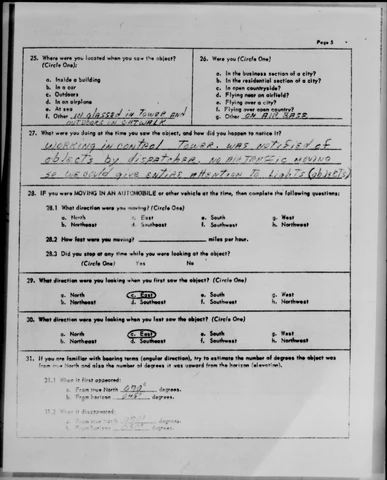 Page 3
25. Where were you located when you saw the object?
(Circle One):
a. Inside a building
b. In a car
c. Outdoors
d. In an airplane
e. At sea
f. Other IN GLASSED IN TOWER AND
OUTDOORS ON CATWALK
26. Were you (Circle One)
a. In the business section of a city?
b. In the residential section of a city?
c. In open countryside?
d. Flying near an airfield?
e. Flying over a city?
f. Flying over open country?
g. Other ON AIR BASE
27. What were you doing at the time you saw the object, and how did you happen to notice it?
WORKING IN CONTROL TOWER. WAS NOTIFIED OF
OBJECTS BY DISPATCHER. NO AIR TRAFFIC MOVING
SO WE COULD GIVE ENTIRE ATTENTION TO LIGHTS (OBJECTS)
28. IF you were MOVING IN AN AUTOMOBILE or other vehicle at the time, then complete the following questions:
28.1 What direction were you moving? (Circle One)
a. North c. East e. South g. West
b. Northeast d. Southeast f. Southwest h. Northwest
28.2 How fast were you moving? miles per hour.
28.3 Did you stop at any time while you were looking at the object?
(Circle One) Yes No
29. What direction were you looking when you first saw the object? (Circle One)
a. North c. East e. South g. West
b. Northeast d. Southeast f. Southwest h. Northwest
30. What direction were you looking when you last saw the object? (Circle One)
a. North c. East e. South g. West
b. Northeast d. Southeast f. Southwest h. Northwest
31. If you are familiar with bearing terms (angular direction), try to estimate the number of degrees the object was
from true North and also the number of degrees it was upward from the horizon (elevation).
31.1 When it first appeared:
a. From true North 070° degrees.
b. From horizon 045° degrees.
31.2 When it disappeared:
a. From true North degrees.
b. From horizon degrees.